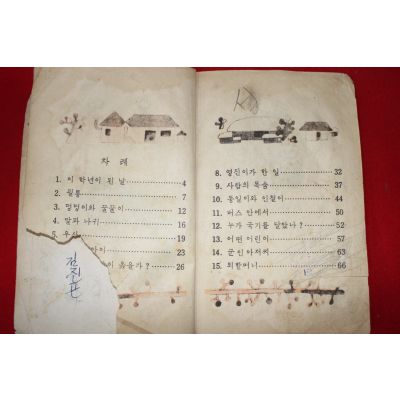 차 례
1. 이 학년이 된 날 4
2. 필통 7
3. 멍멍이와 꿀꿀이 12
4. 말과 나귀 16
5. 우산 19
23
옳을까? 26
8. 영신이가 한 일 32
9. 사람의 목숨 37
10. 동일이와 인철이 44
11. 버스 안에서 50
12. 누가 국기를 달았나? 52
13. 어떤 어린이 57
14. 군인 아저씨 63
15. 외할머니 66